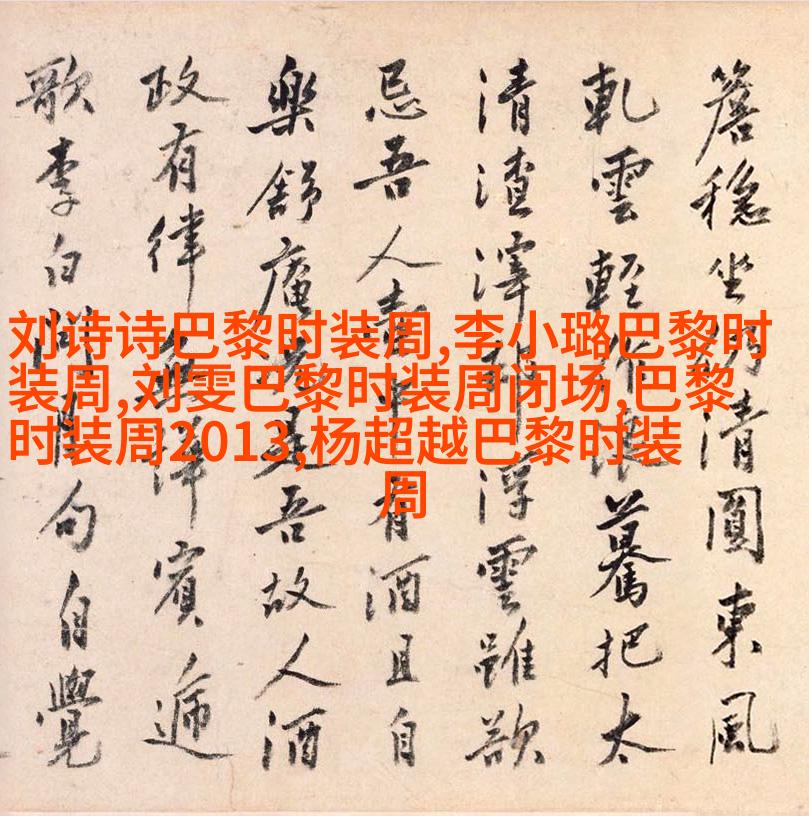 刘诗诗巴黎时装周,李小璐巴黎时
装周,刘雯巴黎时装周闭场,巴黎
时装周2013,杨超越巴黎时装
周
簷穏坐清圓東風
軋雲輕作驀把太
清渣滓浮雲雖欲
忌吾人有酒且自
樂舒庵是吾故人酒
政有律無賓遞
歌李白句自覺